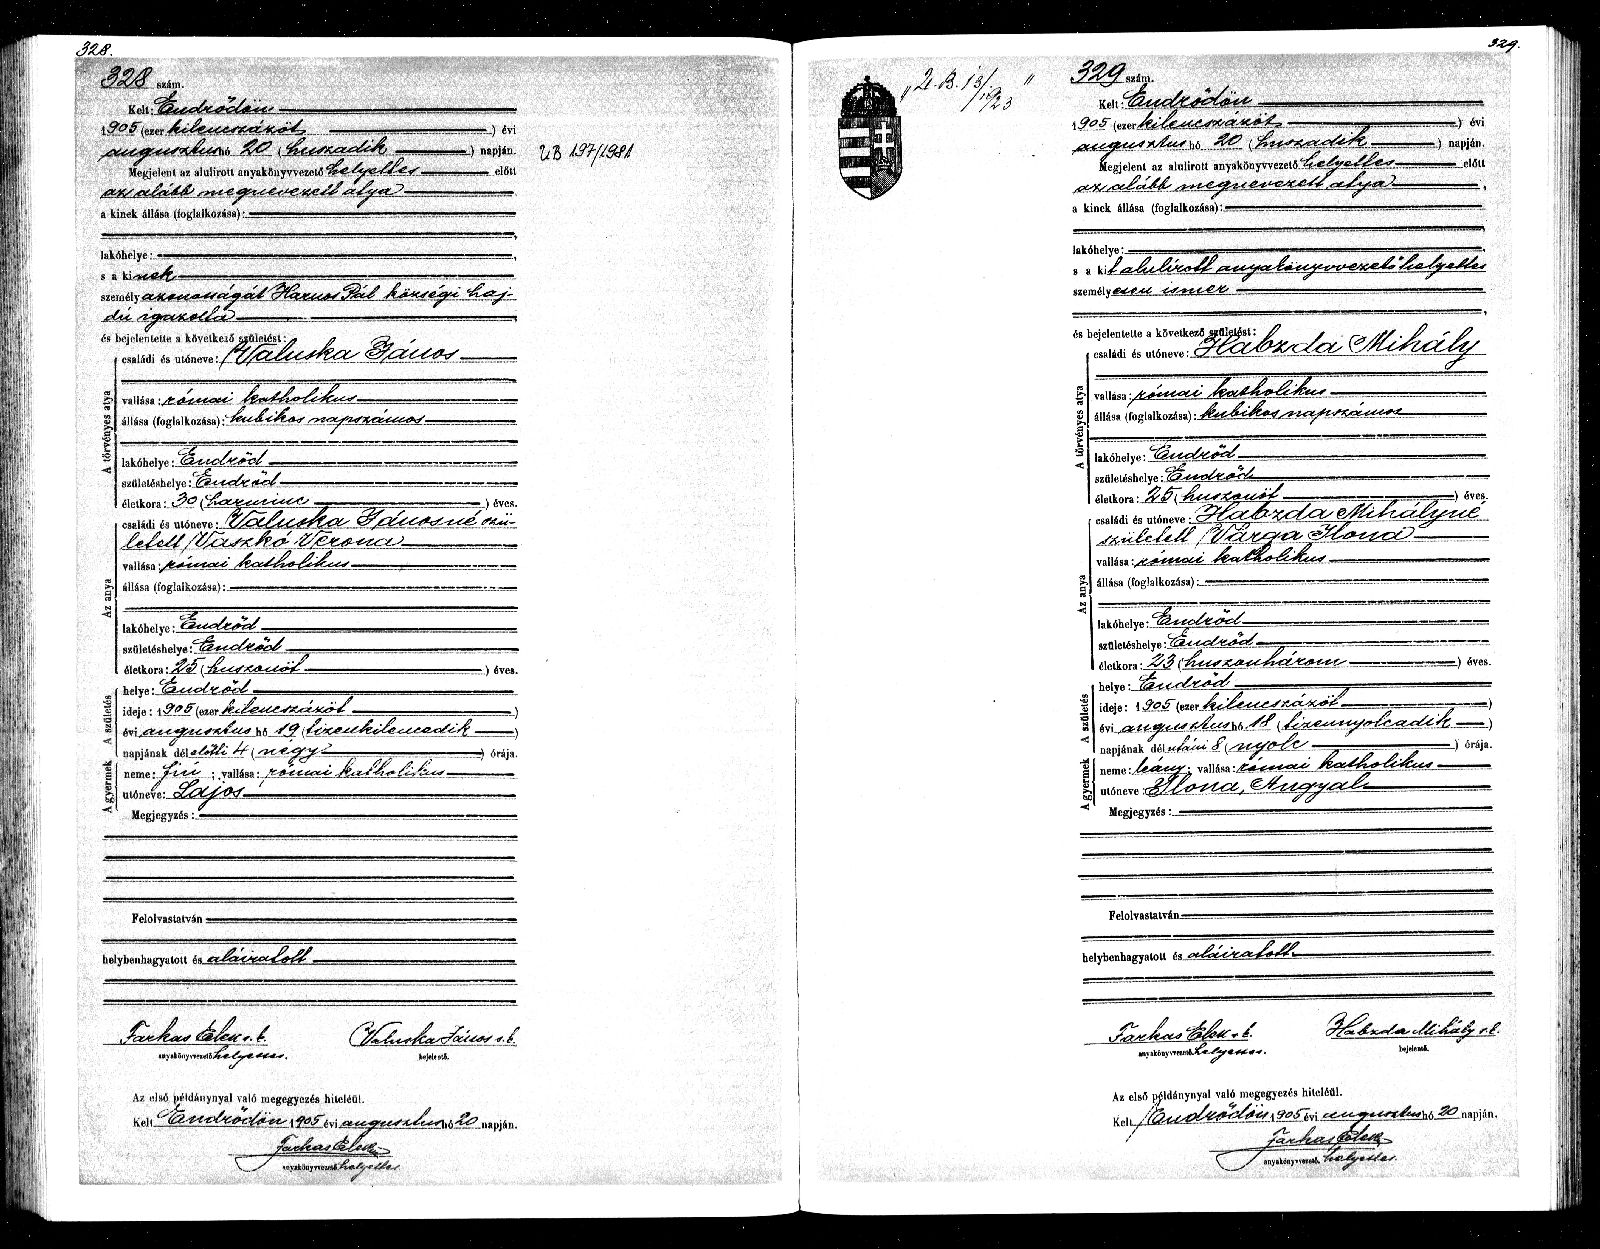 328.
328 szám.
Kelt: Endrődön
1905 (ezer kilencszázöt) évi
augusztus hó 20 (huszadik) napján.
UB 197/1981
Megjelent az alulirott anyakönyvvezető helyettes előtt
az alább megnevezett atya
a kinek állása (foglalkozása):
lakóhelye:
s a kinek
személyazonosságát Harnos Pál községi haj-
dú igazolta
és bejelentette a következő születést:
A törvényes atya
családi és utóneve: Valuska János
vallása: római katholikus
állása (foglalkozása): kubikos napszámos
lakóhelye: Endrőd
születéshelye: Endrőd
életkora: 30 (harminc) éves.
Az anya
családi és utóneve: Valuska Jánosné szü-
letett Vaszkó Verona
vallása: római katholikus
állása (foglalkozása):
lakóhelye: Endrőd
születéshelye: Endrőd
életkora: 25 (huszonöt) éves.
A születés
helye: Endrőd
ideje: 1905 (ezer kilencszázöt)
évi augusztus hó 19 (tizenkilencedik)
napjának délelőtti 4 (négy) órája.
A gyermek
neme: fiú; vallása: római katholikus
utóneve: Lajos
Megjegyzés:
Felolvastatván
helybenhagyatott és aláiratott
Farkas Elek s.k. Valuska János s.k.
anyakönyvvezető helyettes. bejelentő.
Az első példánynyal való megegyezés hiteléül.
Kelt Endrődön 1905 évi augusztus hó 20 napján.
Farkas Elek
anyakönyvvezető helyettes
329.
329 szám.
Kelt: Endrődön
1905 (ezer kilencszázöt) évi
augusztus hó 20 (huszadik) napján.
Megjelent az alulirott anyakönyvvezető helyettes előtt
az alább megnevezett atya,
a kinek állása (foglalkozása):
lakóhelye:
s a kit alulirott anyakönyvvezető helyettes
személyesen ismer
és bejelentette a következő születést:
A törvényes atya
családi és utóneve: Habzda Mihály
vallása: római katholikus
állása (foglalkozása): kubikos napszámos
lakóhelye: Endrőd
születéshelye: Endrőd
életkora: 25 (huszonöt) éves.
Az anya
családi és utóneve: Habzda Mihályné
született Varga Ilona
vallása: római katholikus
állása (foglalkozása):
lakóhelye: Endrőd
születéshelye: Endrőd
életkora: 23 (huszonhárom) éves.
A születés
helye: Endrőd
ideje: 1905 (ezer kilencszázöt)
évi augusztus hó 18 (tizennyolcadik)
napjának délutáni 8 (nyolc) órája.
A gyermek
neme: leány; vallása: római katholikus
utóneve: Ilona, Angyal
Megjegyzés:
Felolvastatván
helybenhagyatott és aláiratott
Farkas Elek s.k. Habzda Mihály s.k.
anyakönyvvezető helyettes. bejelentő.
Az első példánynyal való megegyezés hiteléül.
Kelt Endrődön 1905 évi augusztus hó 20 napján.
Farkas Elek
anyakönyvvezető helyettes